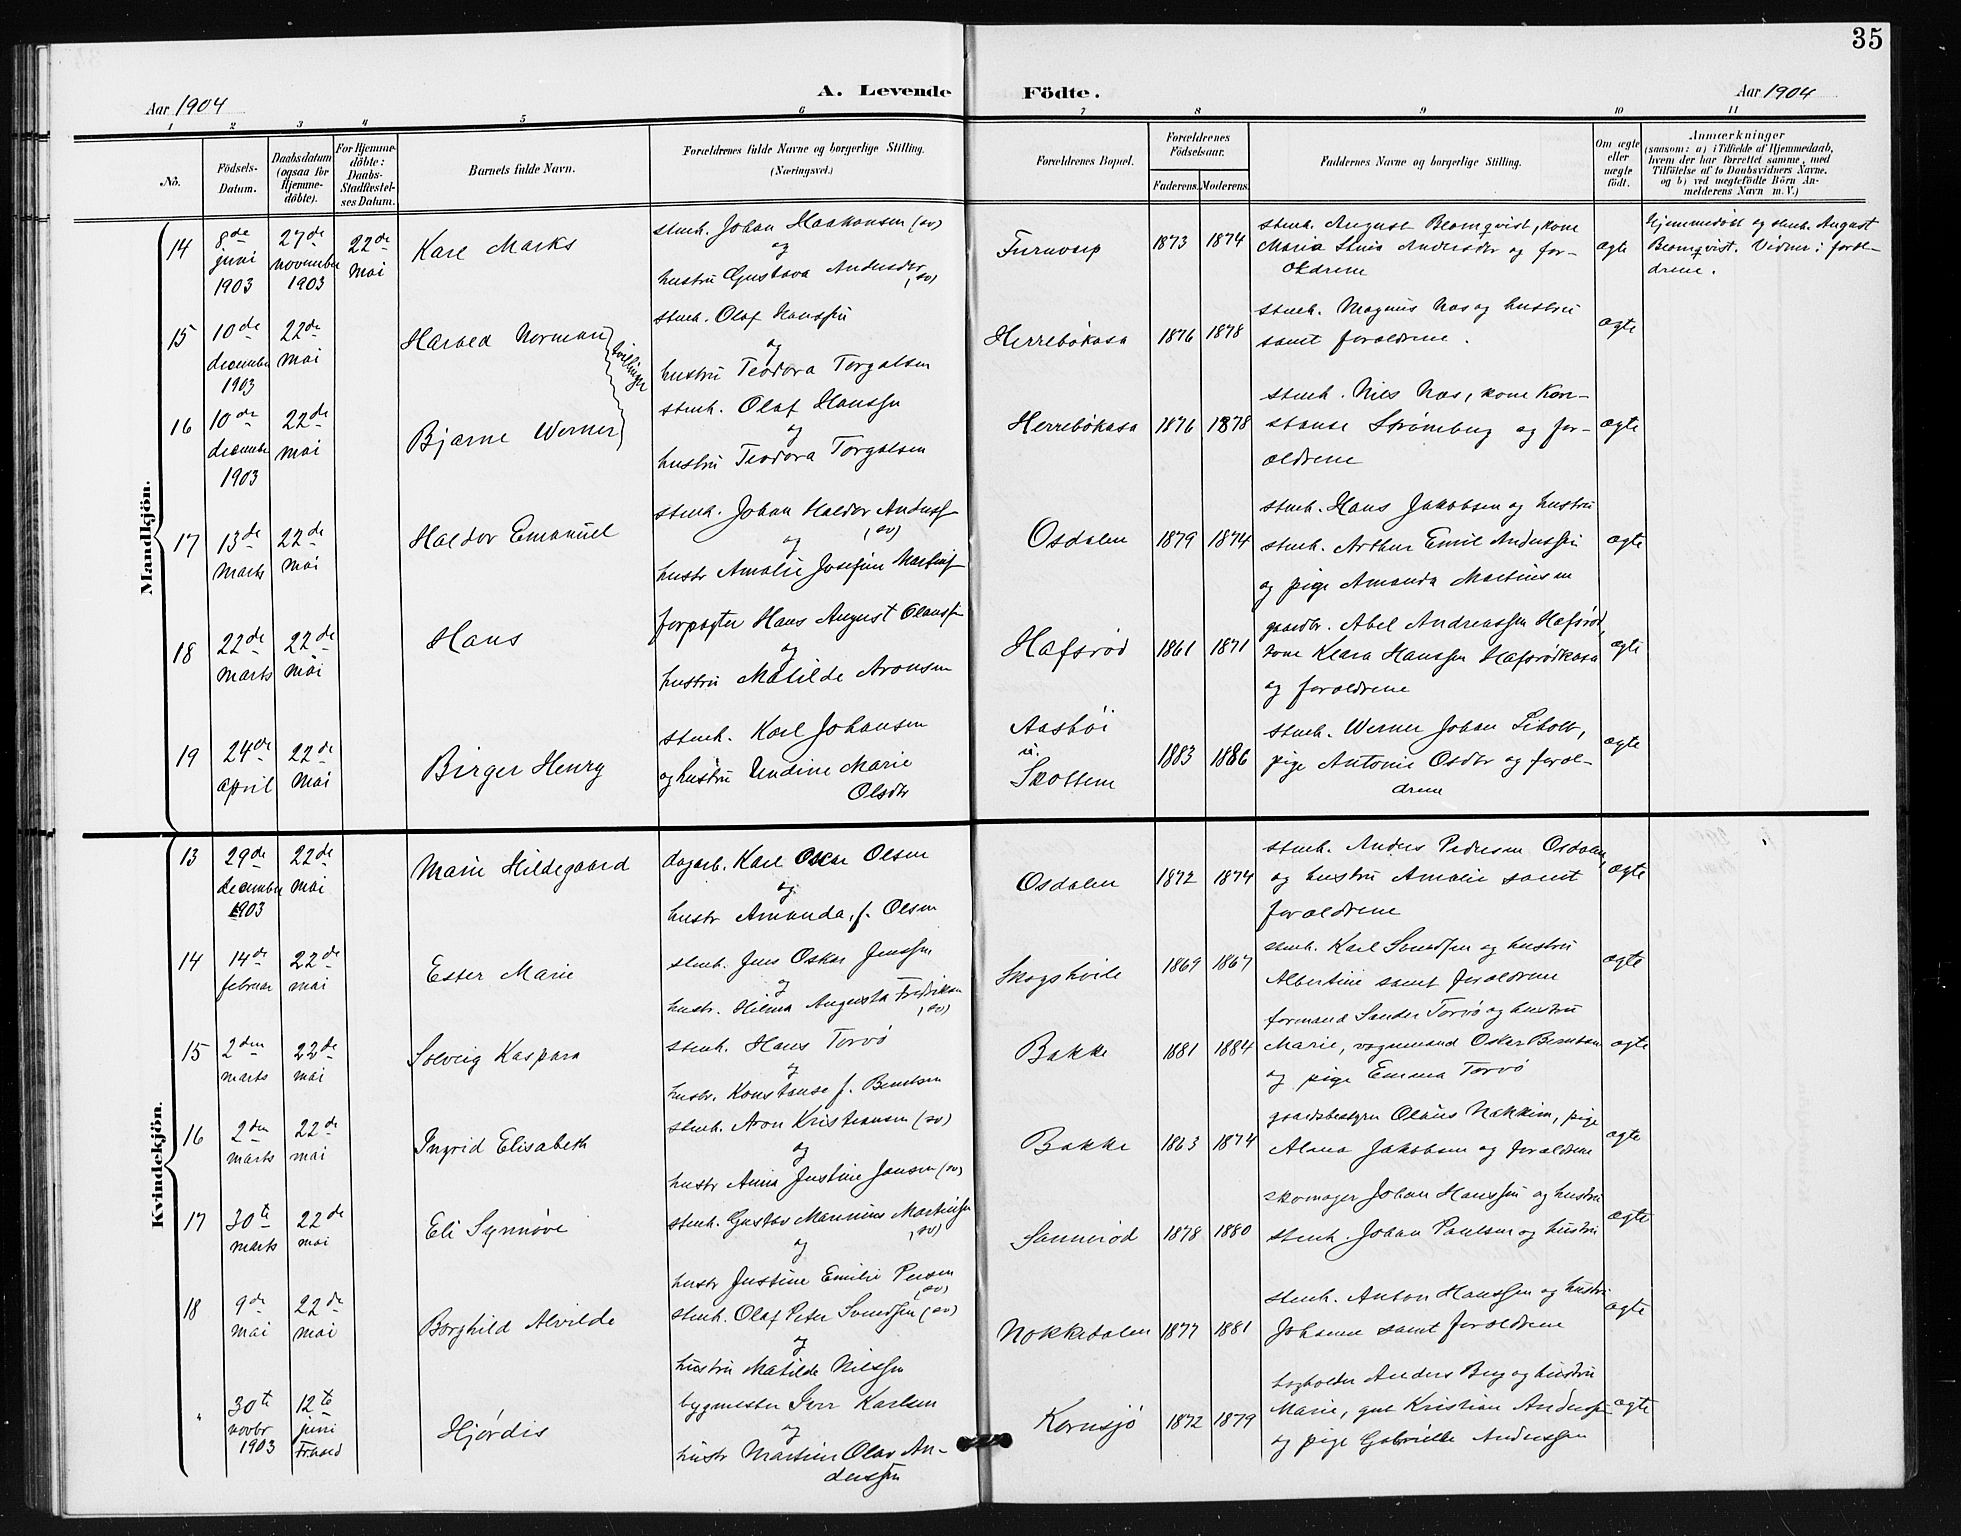 35
Aar 1904
A. Levende
Födte.
Aar 1904
1 2 3 4 5 6 7 8 9 10 11
No.
Födsels-Datum.
Daabsdatum (ogsaa for Hjemme-döbte).
For Hjemme-döbte: Daabs-Stadfæstel-ses Datum.
Barnets fulde Navn.
Forældrenes fulde Navne og borgerlige Stilling. (Næringsvei.)
Forældrenes Bopæl.
Forældrenes Födselsaar.
Faderens. Moderens.
Faddernes Navne og borgerlige Stilling.
Om ægte eller uægte født.
Anmærkninger
(saasom: a) i Tilfælde af Hjemmedaab,
hvem der har forrettet samme, med
Tilföielse af to Daabsvidners Navne.
og b) ved uægtefödte Börn An-
melderens Navn m. V.)
Mandkjön.
14 8de juni 1903 27de november 1903 22de mai Karl Marks
stenh. Johan Haakansen (sv)
og
hustru Gustava Andersdtr (sv)
Furuvarp 1873 1874
stenh. August Blomqvist, kone
Maria Stina Andersdtr og for-
ældrene
ægte
Hjemmedøbt og stenh. August
Blomqvist. Vidner: foræl-
drene.
15 10de december 1903 22de mai Harald Norman
tvillinger
stenh. Olaf Hanssen
og
hustru Teodora Torgalsen
Herrebøkasa 1876 1878
stenh. Magnus Næs og hustru
samt forældrene.
ægte
16 10de december 1903 22de mai Bjarne Werner
stenh. Olaf Hanssen
og
hustru Teodora Torgalsen
Herrebøkasa 1876 1878
stenh. Nils Næs, kone Kon-
stanse Strømberg og for-
ældrene
ægte
17 13de marts 22de mai Haldor Emanuel
stenh. Johan Haldor Anderss
(sv)
og
hustr Amalie Josefine Martins
Osdalen 1879 1874
stenh. Hans Jakobsen og hustru
stenh. Arthur Emil Anderssen
og pige Amanda Martinsen
ægte
18 22de marts 22de mai Hans
forpagter Hans August Olauss
og
hustru Matilde Aronsen
Hafsrød 1861 1871
gaardbr. Abel Andreassen Hafsrød,
kone Klara Hanssen Hafsrødkasa
og forældrene
ægte
19 24de april 22de mai Birger Henry
stenh. Karl Johansen
og hustru Undine Marie
Olsdtr
Aasbøi
u.
Skottene 1883 1886
stenh. Werner Johan
pige Antonie Osdtr og foræl-
drene
ægte
Kvindekjön.
13 29de december 1903 22de mai Marie Hildegaard
dagarb. Karl Oscar Olsen
og
hustr Amanda, f. Olsen
Osdalen 1872 1874
stenh. Anders Pedersen Osdalen,
og hustru Amalie samt
forældrene
ægte
14 14de februar 22de mai Ester Marie
stenh. Jens Oskar Jenssen
og
hustr. Hilma Augusta Fredriksen
(sv)
Skogshvile 1869 1867
stenh. Karl Svendsen og hustru
Albertine samt forældrene
ægte
15 2den marts 22de mai Solveig Kaspara
stenh. Hans Torvø
og
hustr. Konstanse f. Berntsen
Bakke 1881 1884
formand Sander Torvø og hustru
Marie, vognmand Oskar Berntsen
og pige Emma Torvø
ægte
16 2den marts 22de mai Ingrid Elisabeth
stenh. Aron Kristiansen (sv)
og
hustr Anna Justine Jansen (sv)
Bakke 1863 1874
gaardsbestyrer Olaus Nakkim, pige
Alma Jakobsen og forældrene
ægte
17 30te marts 22de mai Eli Synnøve
stenh. Gustav Marinius Martinsen
(sv)
og
hustr Justine Emilie Persen
(sv)
Sannerød 1878 1880
skomager Johan Hanssen og hustru
stenh. Johan Paulsen og hustru
ægte
18 9de mai 22de mai Borghild Alvilde
stenh. Olaf Peter Svendsen (sv)
og
hustru Matilde Nilssen
Nokkedalen 1877 1881
stenh. Anton Hanssen og hustru
Johanne samt forældrene
ægte
" 30te novbr 1903 12te juni Hjørdis
bygmester Iver Karlsen
og
hustr Martine Olava An-
derssen
Kornsjø 1872 1879
bogholder Anders Berg og hustru
Marie, gut Kristian Anderssen
og pige Gabrielle Anderssen
ægte